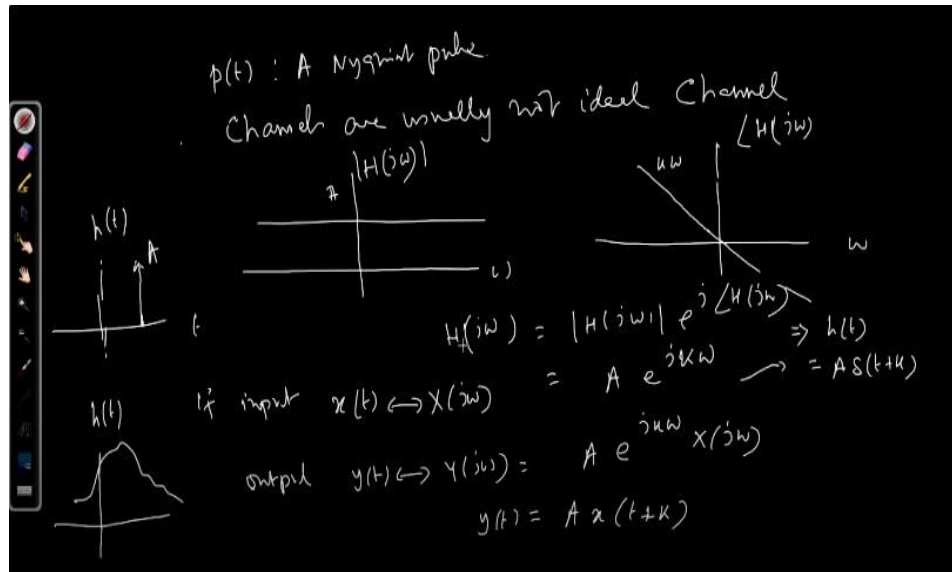 p(t) : A Nyquist pulse
Channels are usually not ideal Channel
|H(jω)|
A
ω
∠H(jω)
kω
ω
h(t)
A
t
H(jω) = |H(jω)| e^{j∠H(jω)}
= A e^{jkω}
⇒ h(t)
= A δ(t+k)
If input x(t) ↔ X(jω)
h(t)
output y(t) ↔ Y(jω) = A e^{jkω} X(jω)
y(t) = A x(t+k)